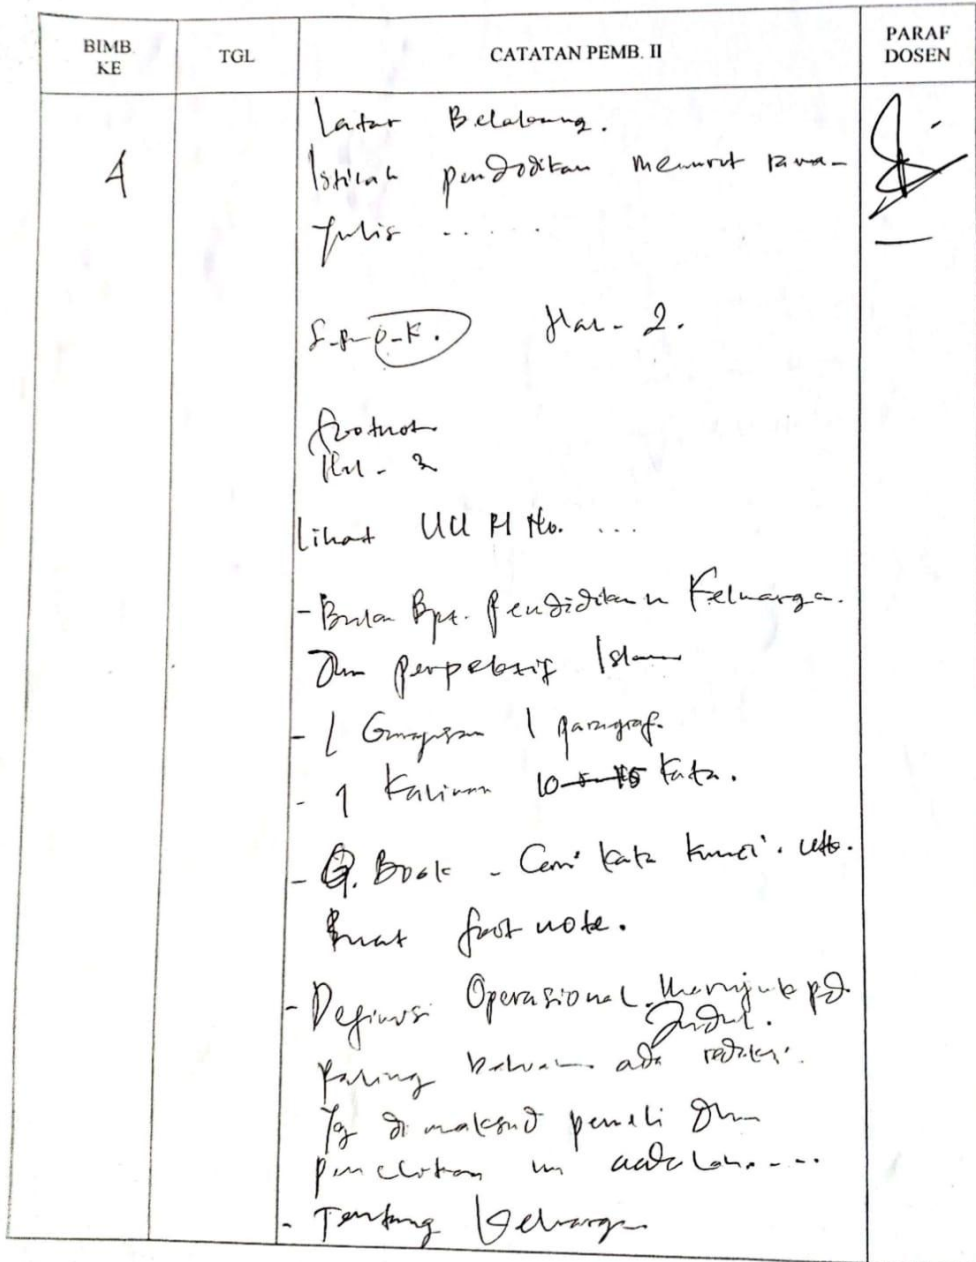 BIMB. KE
TGL
CATATAN PEMB. II
PARAF DOSEN
4
Latar Belakang.
Istilah pendidikan menurut Rama-
yulis .....
S-P-O-K. Hal - 2.
footnote
Hal - 3
Lihat UU RI No. ...
- Bukan Bpk. Pendidikan Keluarga.
Dlm perpektif Islam
- 1 Gagasan 1 paragraf.
- 1 Kalimat 10 Kata.
- G. Book - Cari kata kunci.
Buat foot note.
- Definisi Operasional. Merujuk pd.
Judul.
Paling belakang ada redaksi.
Yg dimaksud peneliti dlm
penelitian ini adalah....
- Tentang Keluarga